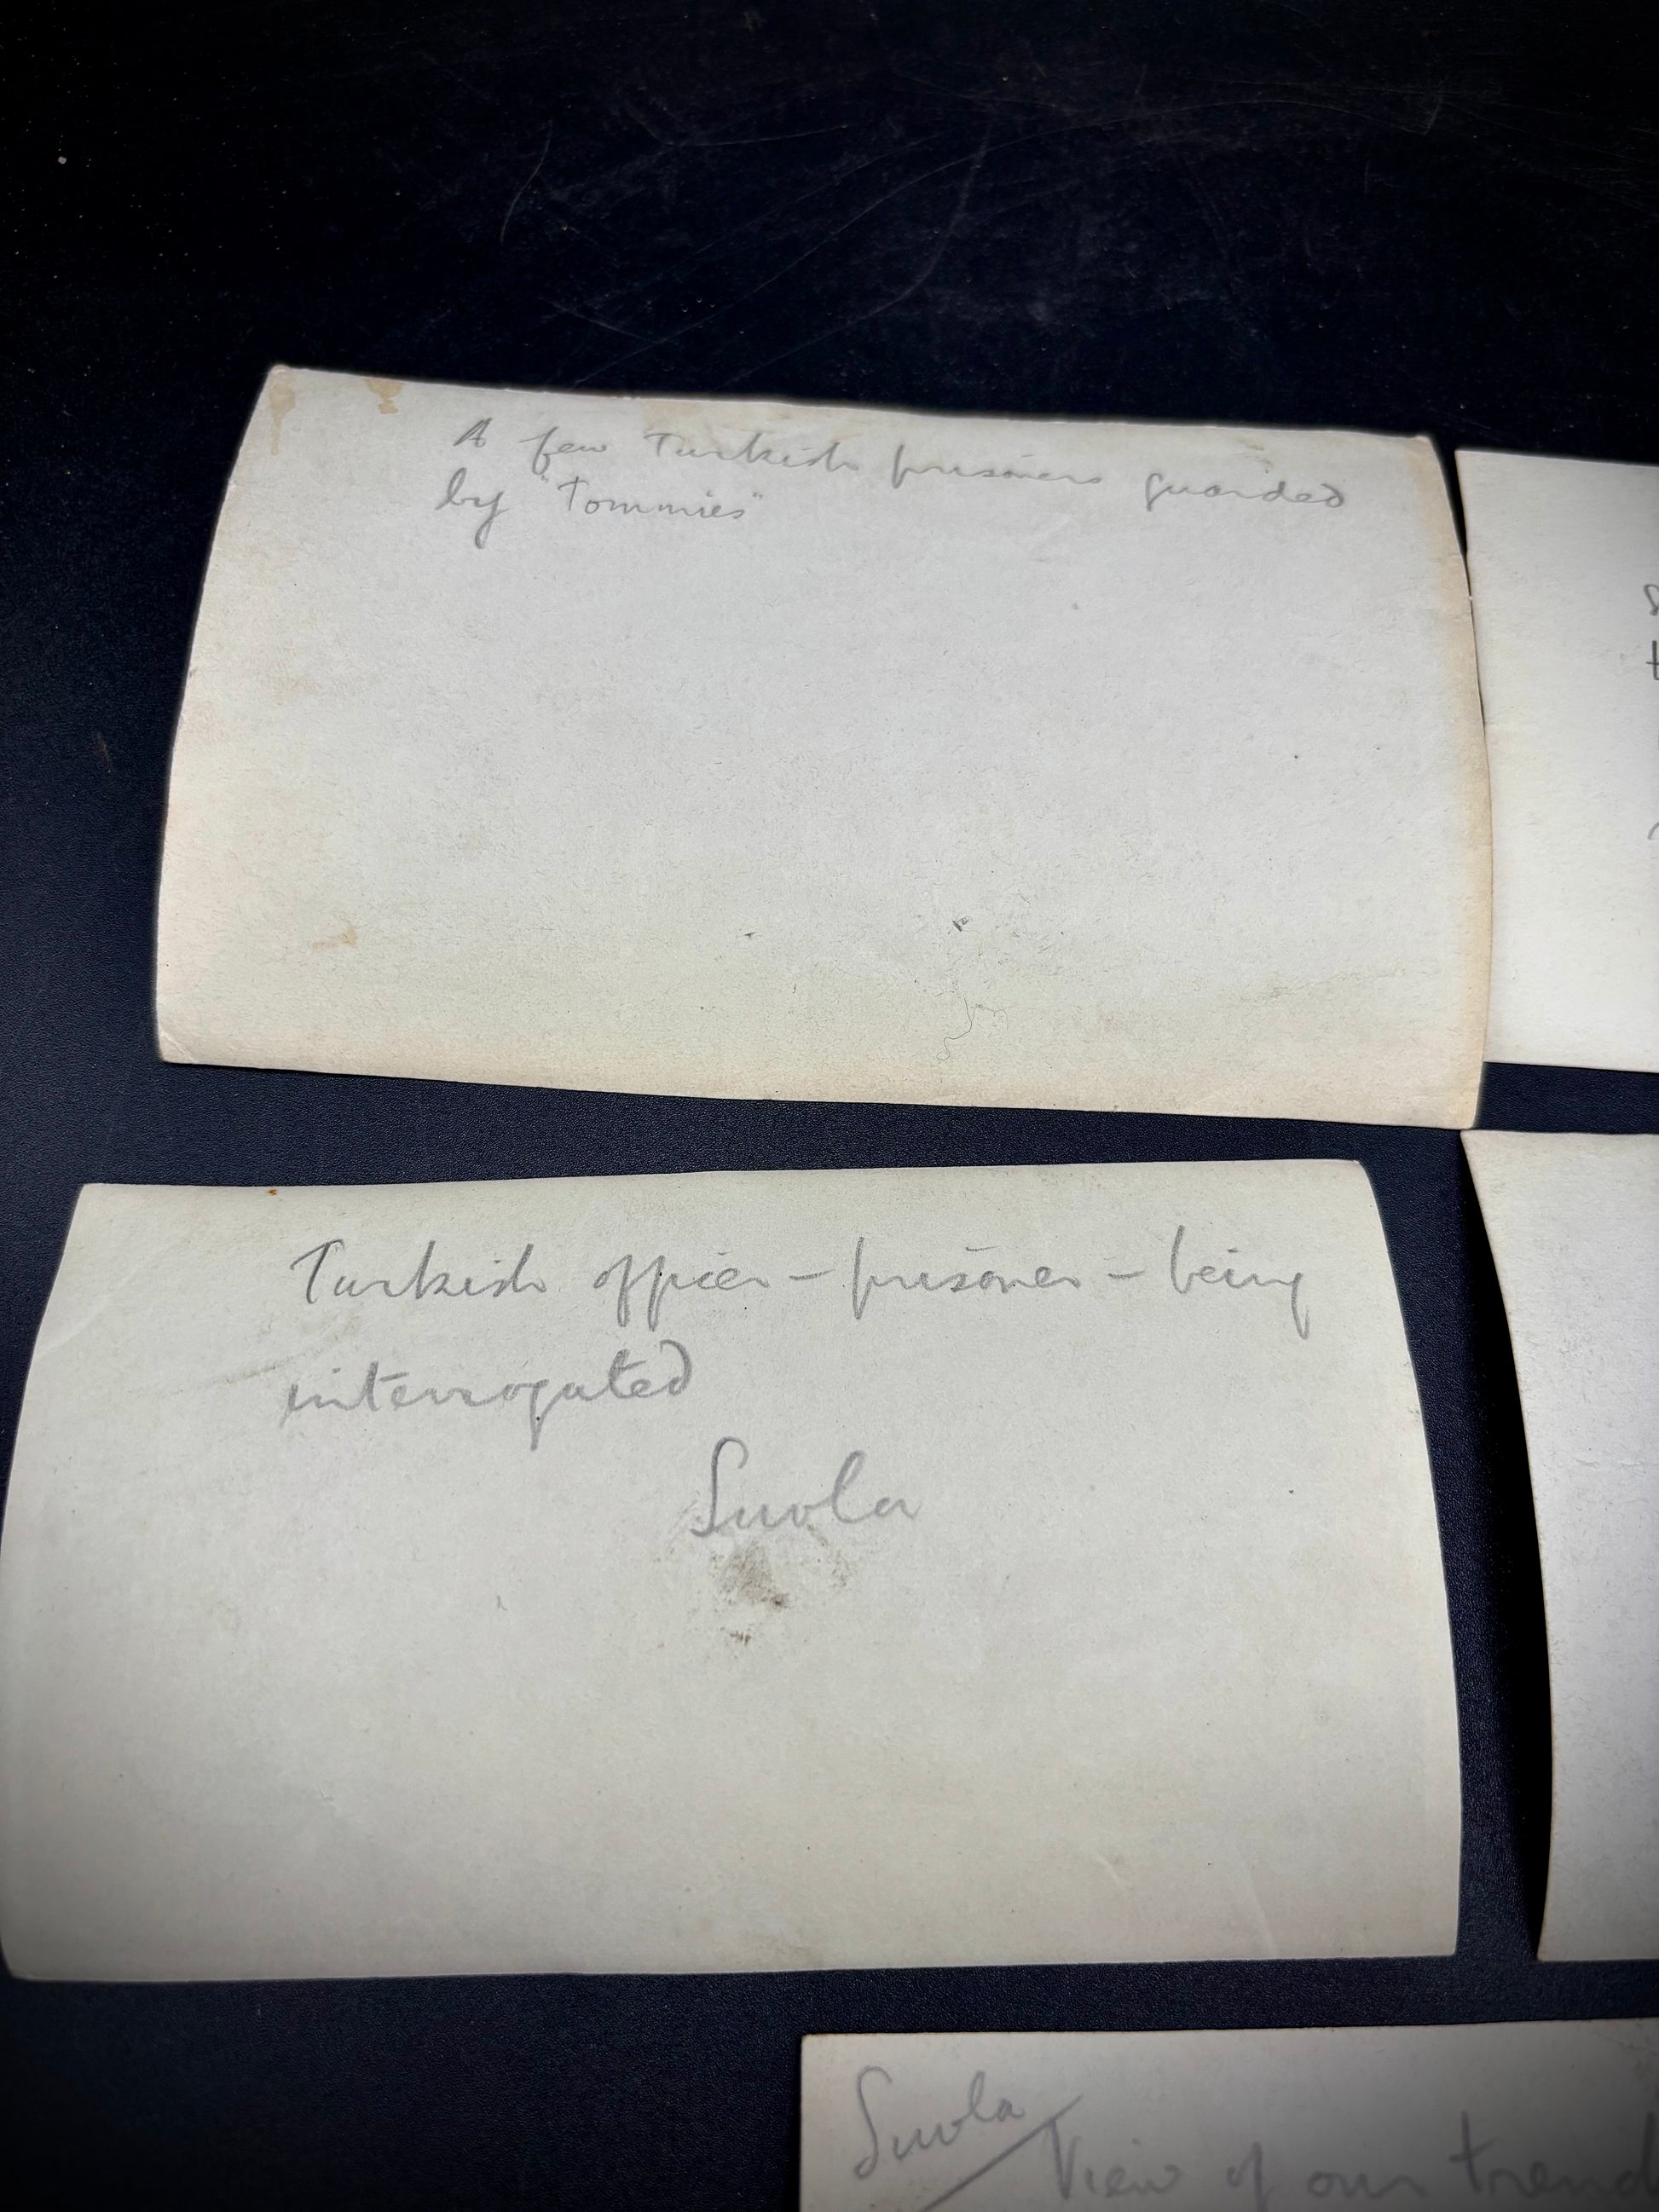 A few Turkish prisoners guarded
by "Tommies"
Turkish officer – prisoner – being
interrogated
Suvla
Suvla
View of our